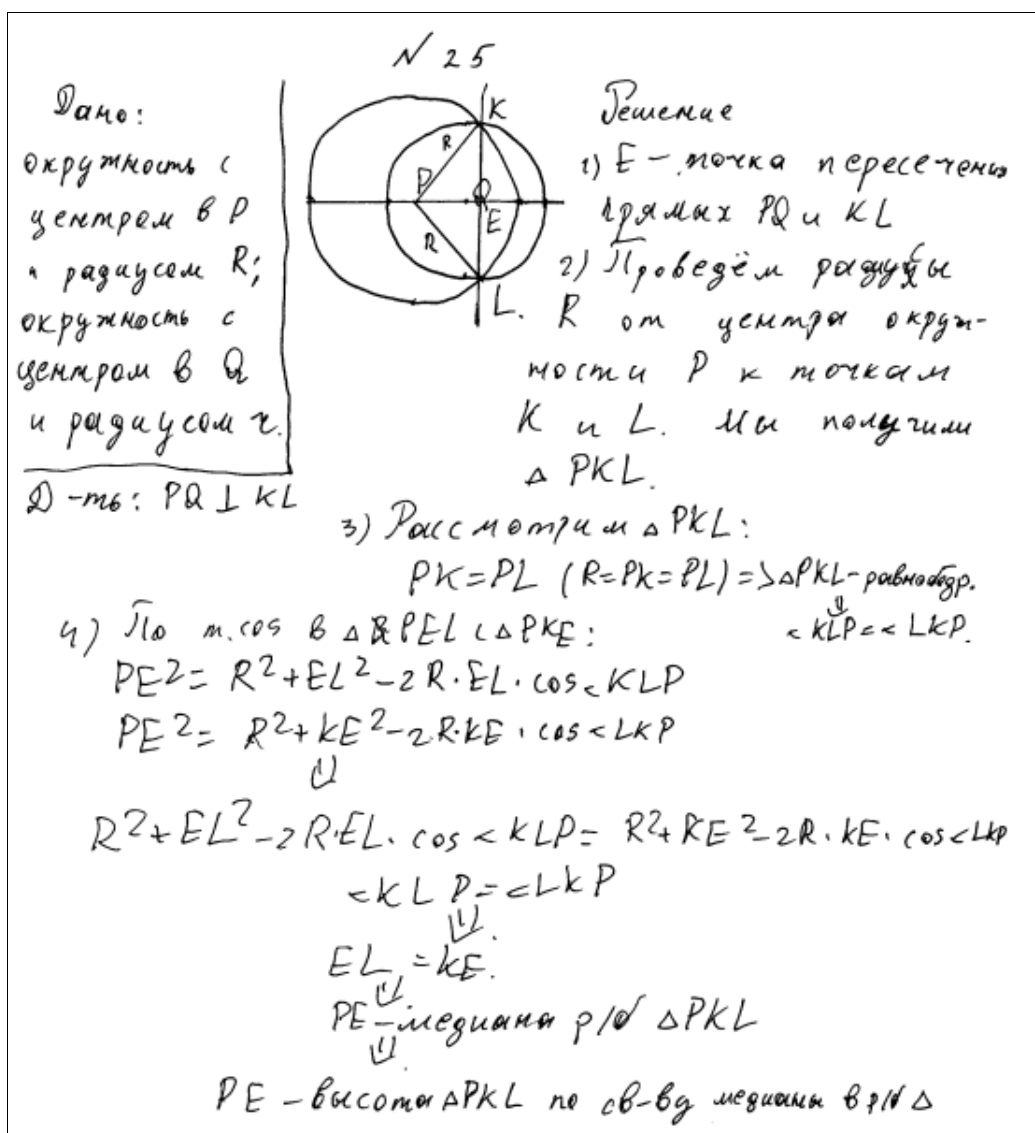 N 25
Дано:
окружность с
центром в P
и радиусом R;
окружность с
центром в Q
и радиусом r.
Д-ть: PQ ⊥ KL
K
R
P
Q
E
R
L.
Решение
1) E - точка пересечения
прямых PQ и KL
2) Проведём радиусы
R от центра окруж-
ности P к точкам
K и L. Мы получили
△ PKL.
3) Рассмотрим △ PKL:
PK=PL (R=PK=PL) => △PKL-равнобедр.
⇓
<KLP=<LKP.
4) По т.cos в △ PEL и △PKE:
PE²= R²+EL²-2R·EL·cos<KLP
PE²= R²+KE²-2R·KE·cos<LKP
⇓
R²+EL²-2R·EL·cos<KLP= R²+KE²-2R·KE·cos<LKP
<KLP=<LKP
⇓
EL=KE.
⇓
PE-медиана р/б △PKL
⇓
PE-высота △PKL по св-ву медианы в р/б △